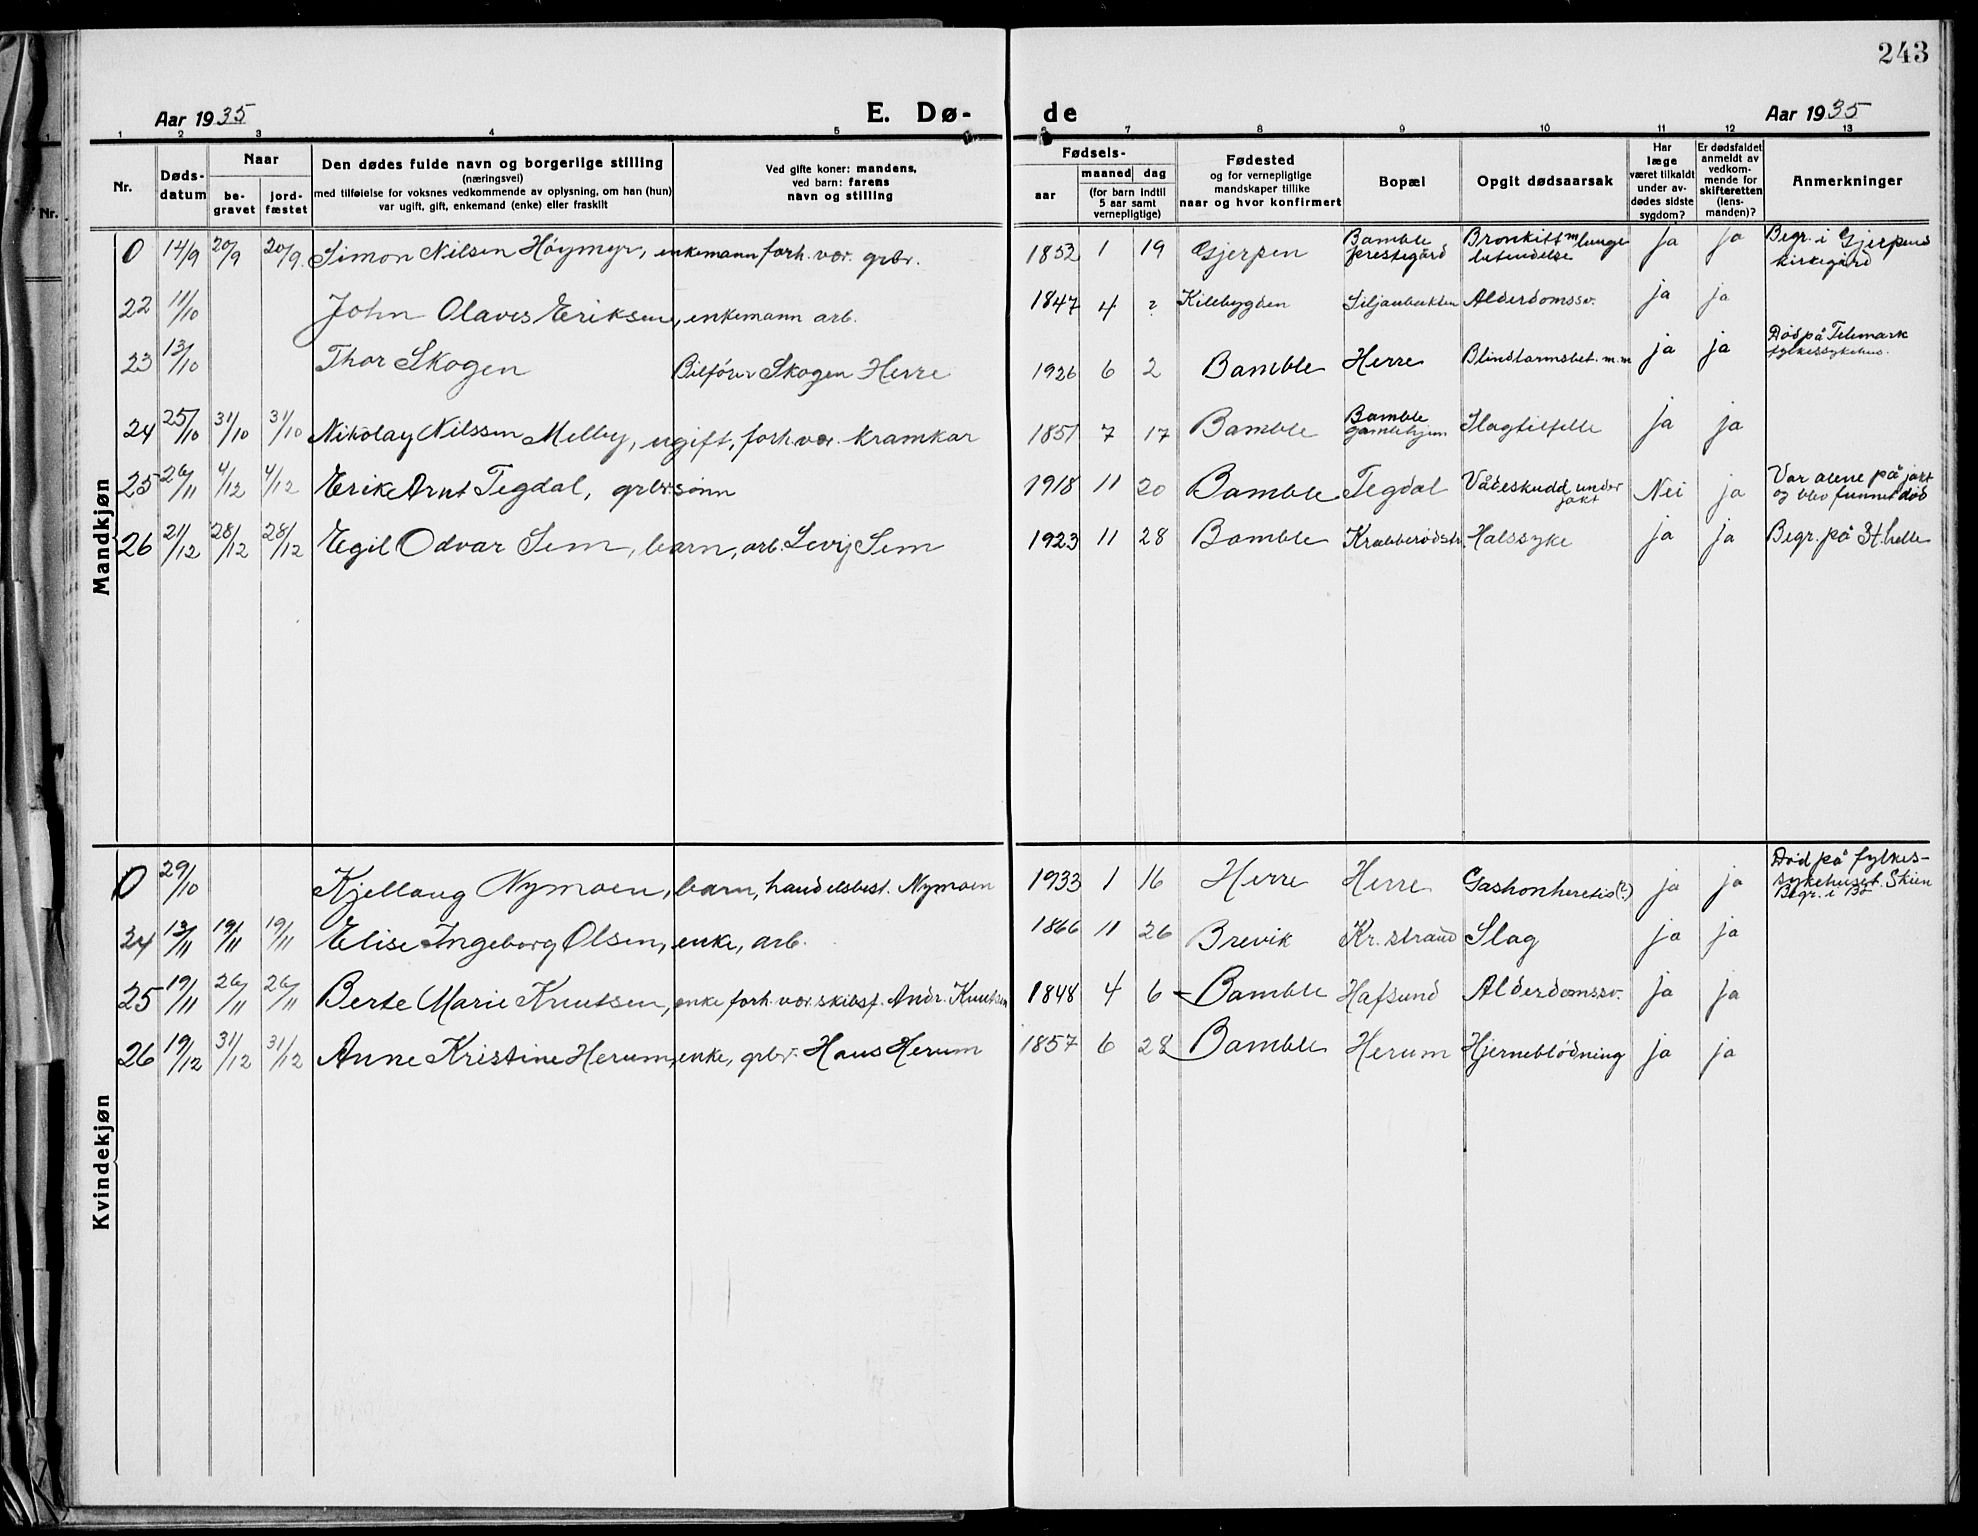 243
Aar 1935 E. Dø- de Aar 1935
1 2 3 4 5 6 7 8 9 10 11 12 13
Nr. Døds-datum Naar be-gravet jord-fæstet Den dødes fulde navn og borgerlige stilling (næringsvei) med tilføielse for voksnes vedkommende av oplysning, om han (hun) var ugift, gift, enkemand (enke) eller fraskilt Ved gifte koner: mandens, ved barn: farens navn og stilling Fødsels- aar maaned dag (for barn indtil 5 aar samt vernepligtige) Fødested og for vernepligtige mandskaper tillike naar og hvor konfirmert Bopæl Opgit dødsaarsak Har læge været tilkaldt under av-dødes sidste sygdom? Er dødsfaldet anmeldt av vedkom-mende for skifteretten (lens-manden)? Anmerkninger
Mandkjøn
0 14/9 20/9 20/9. Simon Nilsen Höymyr, enkemann forh. vær. grbr. 1852 1 19 Gjerpen Bamble prestegård Bronkitt m lunge betendelse ja ja Begr. i Gjerpens kirkegård
22 11/10 John Olaves Eriksen, enkemann arb. 1847 4 ? Kilebygden Siljanbukten Alderdomssv. ja ja
23 13/10 Thor Skogen Bilförer Skogen Herre 1926 6 2 Bamble Herre Blindtarmsbet. m.m ja ja Död på Telemark fylkessykehus.
24 25/10 31/10 31/10 Nikolay Nilssen Melby, ugift, forh. vær. kramkar 1851 7 17 Bamble Bamble gamlehjem Slagtilfelle ja ja
25 26/11 4/12 4/12 Erik Arnt Tegdal, grbr.sönn 1918 11 20 Bamble Tegdal Vådeskudd under jakt Nei ja Var alene på jakt og blev funnet död
26 21/12 28/12 28/12 Egil Odvar Sem, barn, arb. Levij Sem 1923 11 28 Bamble Krabberödstr. Halssyke ja ja Begr. på St.helle
Kvindekjøn
0 29/10 Kjellaug Nymoen, barn, handelsbest. Nymoen 1933 1 16 Herre Herre ja ja Död på fylkes-sykehuset. Skien Begr. i Bö
24 13/11 19/11 19/11 Elise Ingeborg Olsen, enke, arb. 1866 11 26 Brevik Kr. strand Slag ja ja
25 19/11 26/11 26/11 Berte Marie Knutsen, enke forh. vær. skibsf. Andr. Knutsen 1848 4 6 Bamble Hafsund Alderdomssv. ja ja
26 19/12 31/12 31/12 Anne Kristine Herum, enke, grbr. Hans Herum 1857 6 28 Bamble Herum Hjerneblödning ja ja